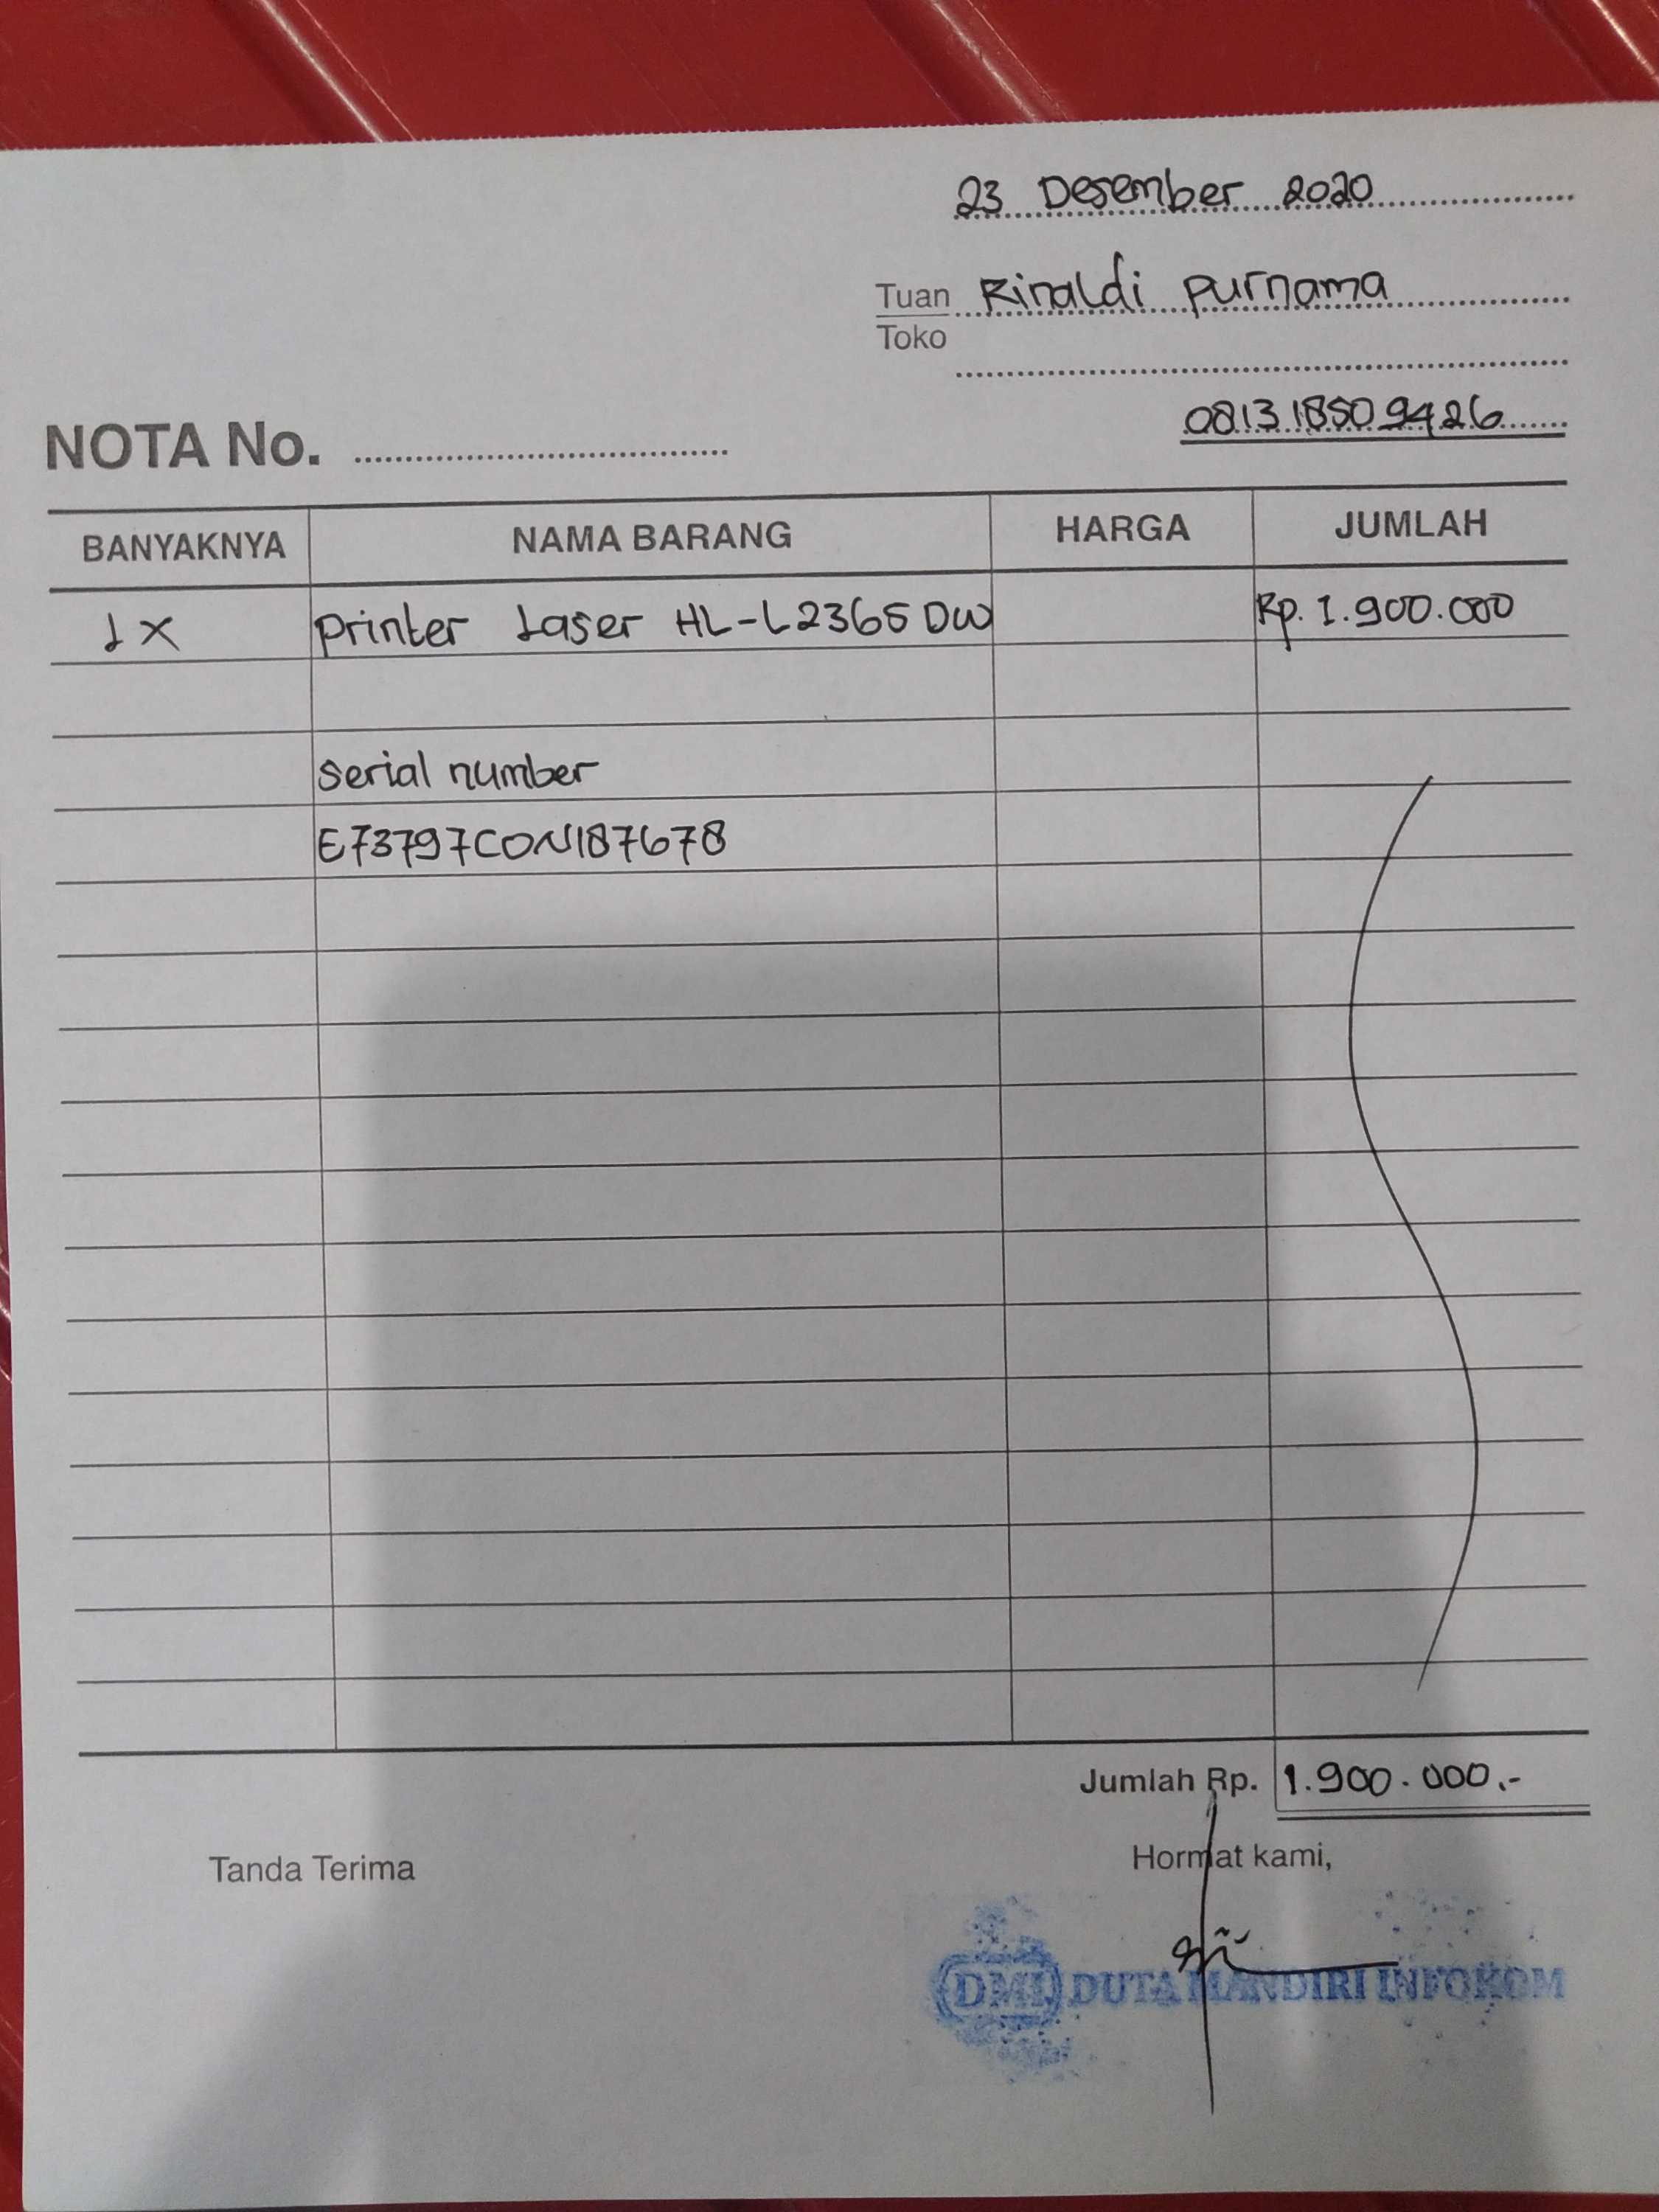 23 Desember 2020
Tuan Rinaldi purnama
Toko
081318509426
NOTA No.
BANYAKNYA NAMA BARANG HARGA JUMLAH
1 X printer Laser HL-L2365DW Rp. 1.900.000
serial number
E73797CON187678
Jumlah Rp. 1.900.000.-
Tanda Terima Hormat kami,
DMI DUTA MANDIRI INFOKOM